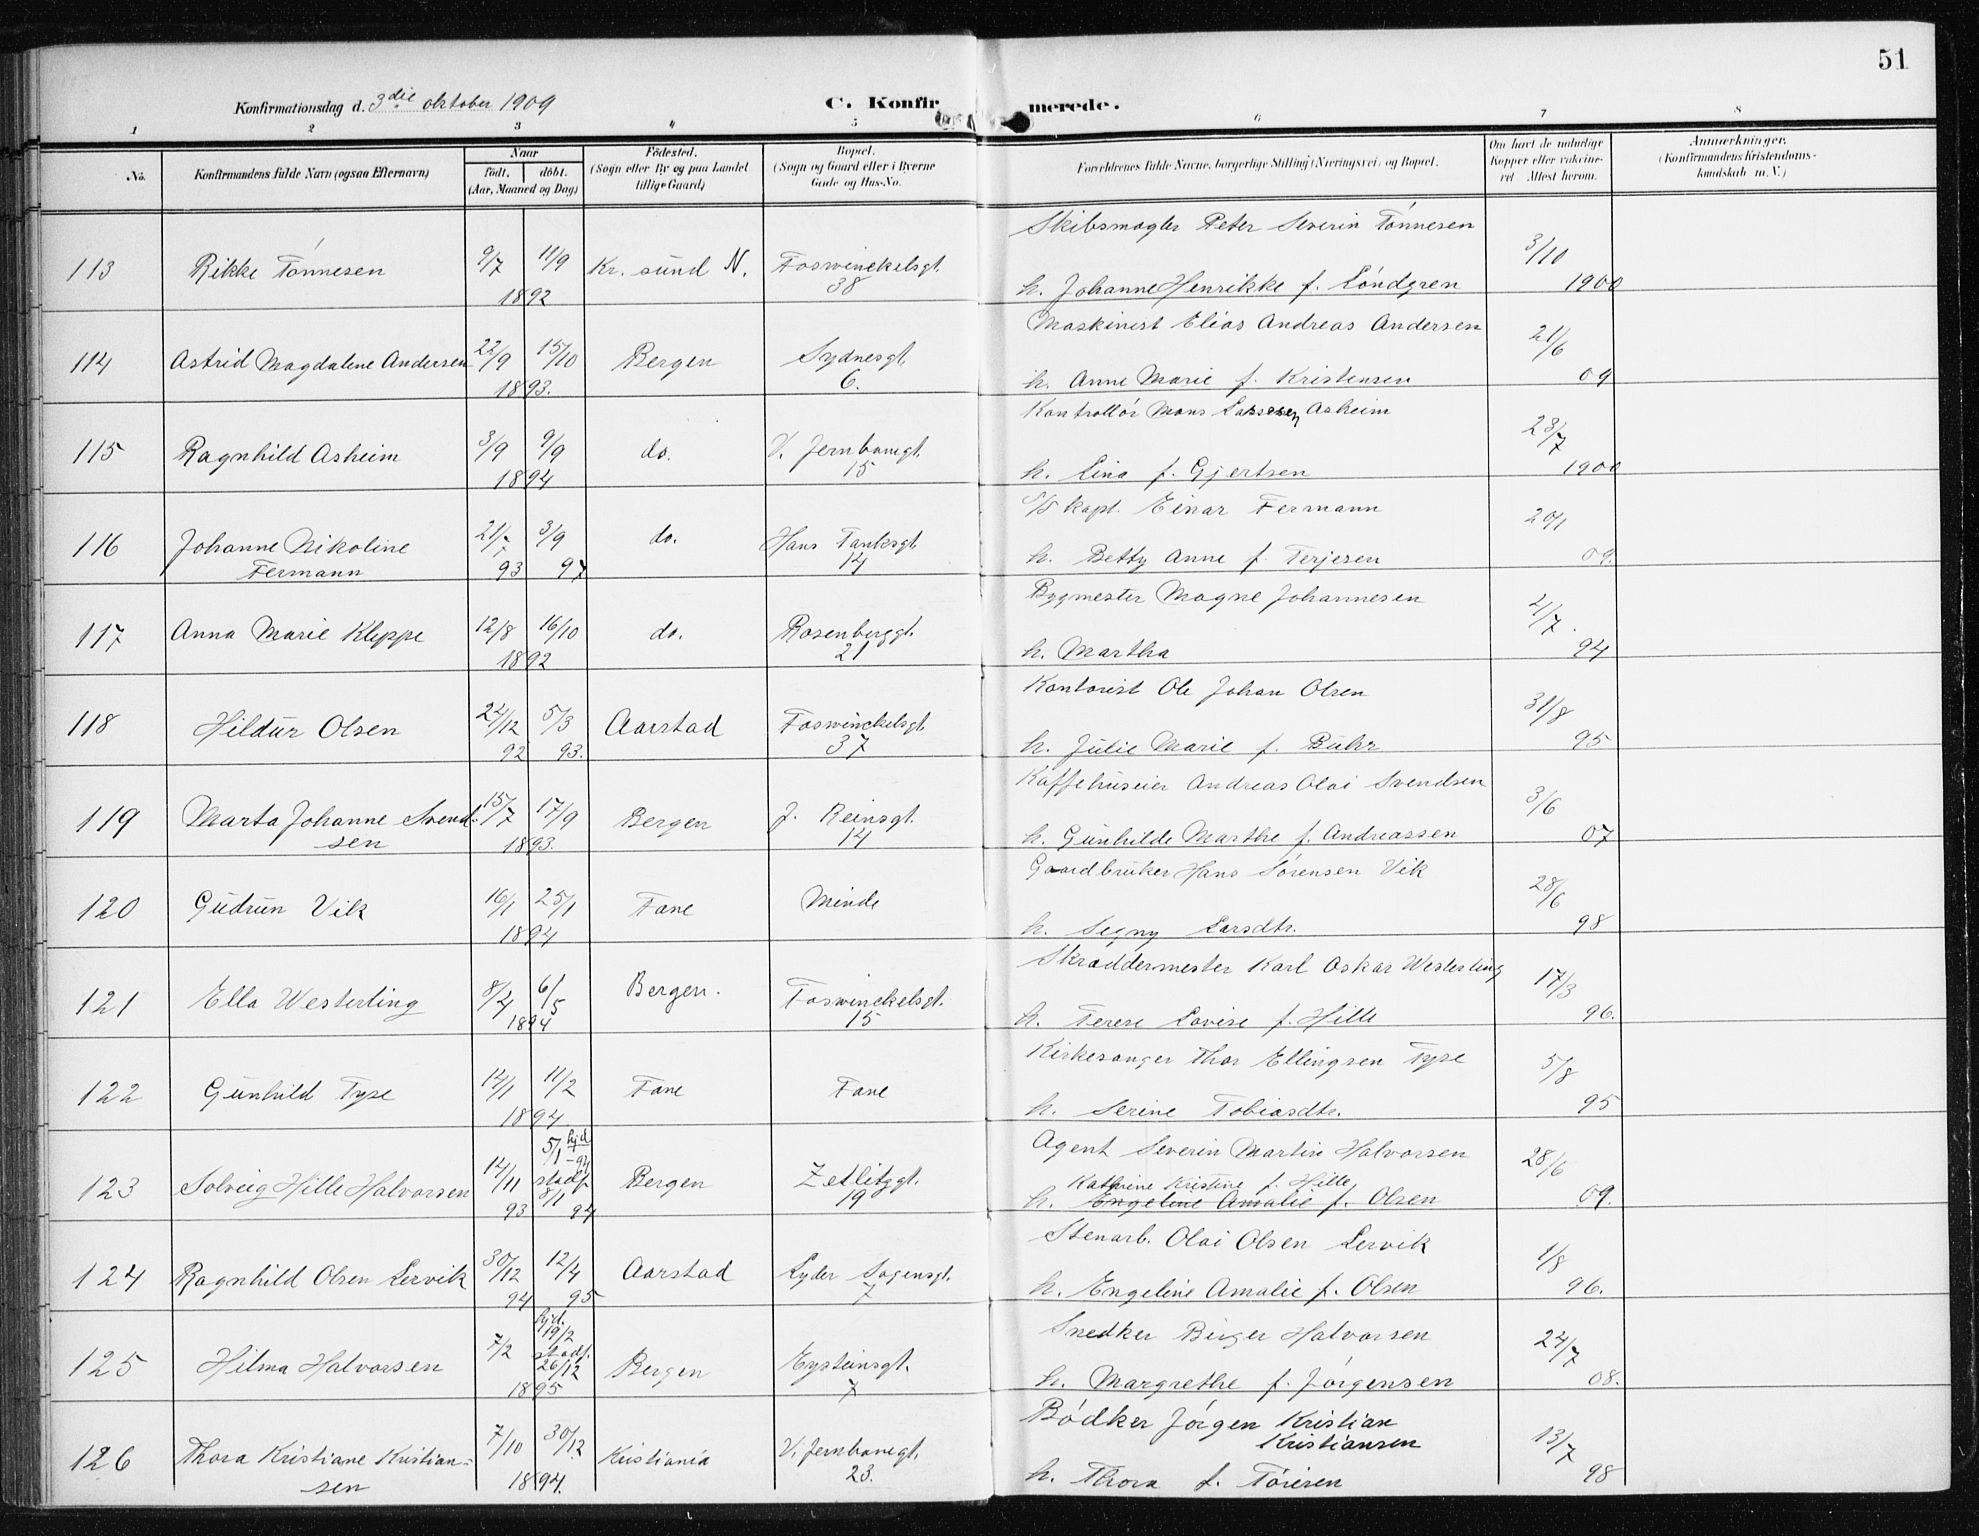 51
Konfirmationsdag d. 3die oktober 1909
C. Konfirmerede.
1 2 3 4 5 6 7 8
No.
Konfirmandens fulde Navn (ogsaa Efternavn)
Naar
födt. döbt.
(Aar, Maaned og Dag)
Födested.
(Sogn eller By og paa Landet
tillige Gaard)
Bopæl.
(Sogn og Gaard eller i Byerne
Gade og Hus-No.
Forældrenes fulde Navne, borgerlige Stilling (Næringsvei) og Bopæl.
Om havt de naturlige
Kopper eller vaccine-
ret Attest herom.
Anmærkninger.
(Konfirmandens Kristendoms-
kundskab m. V.)
Skibsmægler Peter Severin Tönnesen
113 Rikke Tönnesen 9/7 11/9 Kr. sund N. Fosswinckelsgt. 3/10
1892 38 h. Johanne Henrikke f. Löndgren 1900
Maskinist Elias Andreas Andersen
114 Astrid Magdalene Andersen 22/9 15/10 Bergen Sydnesgt. 21/6
1893. 6. h. Anne Marie f. Kristensen 09
Kontrollör Mons Larssen Asheim
115 Ragnhild Asheim 3/9 9/9 do. V. Jernbanegt. 23/7
1894 15 h. Lina f. Gjertsen 1900
S/S kapt. Einar Fermann
116 Johanne Nikoline 21/7 3/9 do. Hans Tanksgt. 20/1
Fermann 93 97 14 h. Betty Anne f. Terjesen 09.
Bygmester Magne Johannesen
117 Anna Marie Kleppe 12/8 16/10 do. Rosenberggt. 21/7.
1892 21 h. Martha 94
Kontorist Ole Johan Olsen
118 Hildur Olsen 24/12 5/3 Aarstad Fosswinckelsgt. 31/8
92 93. 37 h. Julie Marie f. Buhr 95
Kaffehuseier Andreas Olai Svendsen
119 Marta Johanne Svend- 15/7 17/9 Bergen J. Reinsgt. 3/6
sen 1893. 14 h. Gunhilde Marthe f. Andreassen 07
Gaardbruker Hans Sørensen Vik
120 Gudrun Vik 16/1 25/1 Fane Minde 28/6
1894 h. Segny Larsdtr. 98
Skræddermester Karl Oskar Westerling
121 Ella Westerling 8/4 6/5 Bergen. Fosswinckelsgt. 17/3
1894 15 h. Terese Lovise f. Hille 96.
Kirkesanger Thor Ellingsen Tyse
122 Gunhild Tyse 14/1 11/2 Fane Fane 5/8
1894 h. Serine Tobiasdtr. 95
5/1 hjd. Agent Severin Martin Halvorsen
-94
123 Solveig Hille Halvorsen 14/11 stadf. Bergen Zetlitzgt. 28/6
8/1 Kathrine Kristine f. Hille
93 94 19 h. Engeline Amalie f. Olsen 09.
Stenarb. Olai Olsen Lervik
124 Ragnhild Olsen Lervik 30/12 12/4 Aarstad Lyder Sagensgt. 1/8
94 95 7 h. Engeline Amalie f. Olsen 96.
hjd.
19/2 Snedker Birger Halvorsen
125 Hilma Halvorsen 7/2 stadf. Bergen Eysteinsgt. 24/7
26/12
1895 7 h. Margrethe f. Jørgensen 08.
Bödker Jörgen Kristian
Kristiansen
126 Thora Kristiane Kristian- 7/10 30/12 Kristiania V. Jernbanegt. 13/7
sen 1894. 23. h. Thora f. Töresen 98